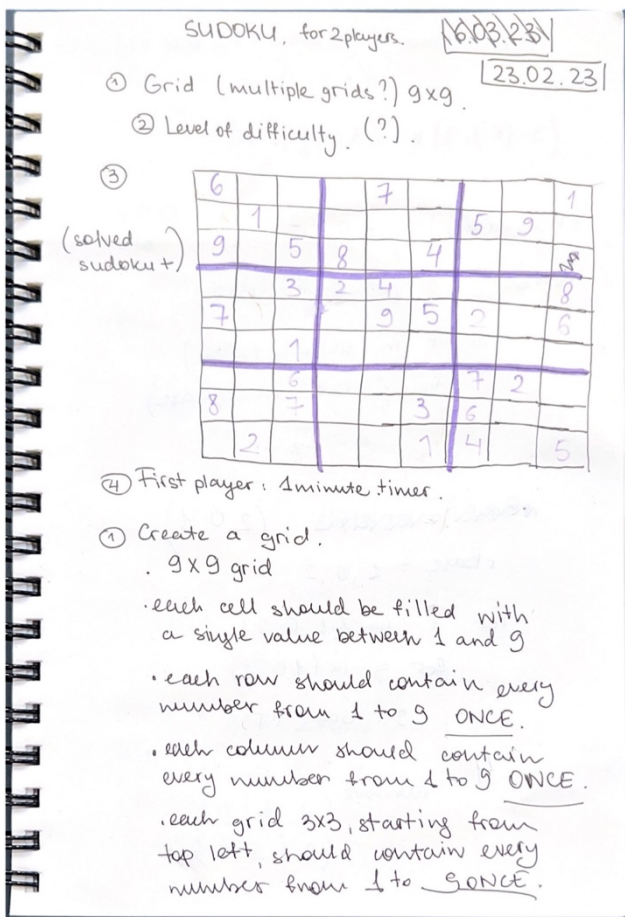 SUDOKU. for 2 players.
16.03.23
23.02.23
① Grid (multiple grids?) 9x9.
② Level of difficulty. (?).
③
(solved
sudoku +)
6 7 1
1 5 9
9 5 8 4
3 2 4 8
7 9 5 2 6
1
6 7 2
8 7 3 6
2 1 4 5
④ First player: 1 minute timer.
① Create a grid.
. 9x9 grid
. each cell should be filled with
a single value between 1 and 9
. each row should contain every
number from 1 to 9 ONCE.
. each column should contain
every number from 1 to 9 ONCE.
. each grid 3x3, starting from
top left, should contain every
number from 1 to 9 ONCE.